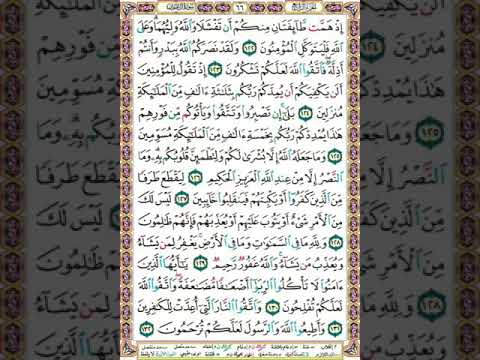 ٦٦
إِذْ هَمَّت طَّآئِفَتَانِ مِنكُمْ أَن تَفْشَلَا وَٱللَّهُ وَلِيُّهُمَا وَعَلَى
ٱللَّهِ فَلْيَتَوَكَّلِ ٱلْمُؤْمِنُونَ ١٢٢ وَلَقَدْ نَصَرَكُمُ ٱللَّهُ بِبَدْرٍ وَأَنتُمْ
أَذِلَّةٌ فَٱتَّقُوا۟ ٱللَّهَ لَعَلَّكُمْ تَشْكُرُونَ ١٢٣ إِذْ تَقُولُ لِلْمُؤْمِنِينَ
أَلَن يَكْفِيَكُمْ أَن يُمِدَّكُمْ رَبُّكُم بِثَلَٰثَةِ ءَالَٰفٍ مِّنَ ٱلْمَلَٰٓئِكَةِ
مُنزَلِينَ ١٢٤ بَلَىٰٓ إِن تَصْبِرُوا۟ وَتَتَّقُوا۟ وَيَأْتُوكُم مِّن فَوْرِهِمْ
هَٰذَا يُمْدِدْكُمْ رَبُّكُم بِخَمْسَةِ ءَالَٰفٍ مِّنَ ٱلْمَلَٰٓئِكَةِ مُسَوِّمِينَ
١٢٥ وَمَا جَعَلَهُ ٱللَّهُ إِلَّا بُشْرَىٰ لَكُمْ وَلِتَطْمَئِنَّ قُلُوبُكُم بِهِۦ وَمَا
ٱلنَّصْرُ إِلَّا مِنْ عِندِ ٱللَّهِ ٱلْعَزِيزِ ٱلْحَكِيمِ ١٢٦ لِيَقْطَعَ طَرَفًا
مِّنَ ٱلَّذِينَ كَفَرُوٓا۟ أَوْ يَكْبِتَهُمْ فَيَنقَلِبُوا۟ خَآئِبِينَ ١٢٧ لَيْسَ لَكَ
مِنَ ٱلْأَمْرِ شَىْءٌ أَوْ يَتُوبَ عَلَيْهِمْ أَوْ يُعَذِّبَهُمْ فَإِنَّهُمْ ظَٰلِمُونَ
١٢٨ وَلِلَّهِ مَا فِى ٱلسَّمَٰوَٰتِ وَمَا فِى ٱلْأَرْضِ يَغْفِرُ لِمَن يَشَآءُ
وَيُعَذِّبُ مَن يَشَآءُ وَٱللَّهُ غَفُورٌ رَّحِيمٌ ١٢٩ يَٰٓأَيُّهَا ٱلَّذِينَ
ءَامَنُوا۟ لَا تَأْكُلُوا۟ ٱلرِّبَوٰٓا۟ أَضْعَٰفًا مُّضَٰعَفَةً وَٱتَّقُوا۟ ٱللَّهَ
لَعَلَّكُمْ تُفْلِحُونَ ١٣٠ وَٱتَّقُوا۟ ٱلنَّارَ ٱلَّتِىٓ أُعِدَّتْ لِلْكَٰفِرِينَ
١٣١ وَأَطِيعُوا۟ ٱللَّهَ وَٱلرَّسُولَ لَعَلَّكُمْ تُرْحَمُونَ ١٣٢